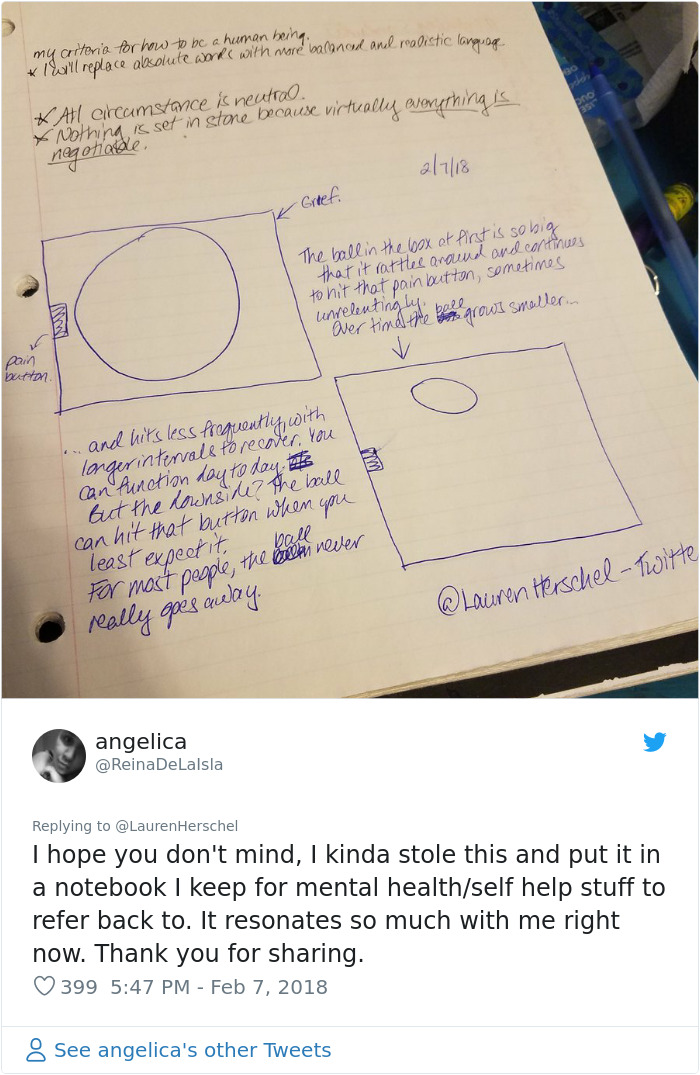 my criteria for how to be a human being.
* I will replace absolute words with more balanced and realistic language
* All circumstance is neutral.
* Nothing is set in stone because virtually everything is
negotiable.
2/7/18
Grief.
The ball in the box at first is so big
that it rattles around and continues
to hit that pain button, sometimes
unrelentingly.
Over time the ball grows smaller...
pain
button.
... and hits less frequently, with
longer intervals to recover. You
can function day to day.
But the downside? The ball
can hit that button when you
least expect it.
For most people, the ball never
really goes away.
@LaurenHerschel - Twitte
angelica
@ReinaDeLaIsla
Replying to @LaurenHerschel
I hope you don't mind, I kinda stole this and put it in
a notebook I keep for mental health/self help stuff to
refer back to. It resonates so much with me right
now. Thank you for sharing.
399 5:47 PM - Feb 7, 2018
See angelica's other Tweets